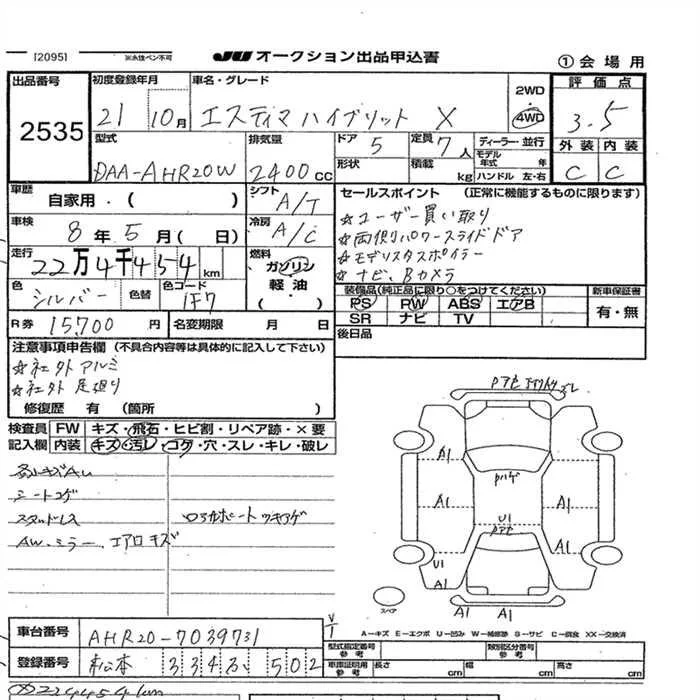 [2095]
※水性ペン不可
JU オークション出品申込書
①会場用
出品番号
2535
初度登録年月
21 10月
車名・グレード
エスティマ ハイブリット X
2WD
4WD
評価点
3.5
外装 内装
C C
型式
DAA-AHR20W
排気量
2400cc
ドア
5
定員
7人
形状
積載
kg
ディーラー・並行
モデル年式 年
ハンドル 左・右
車歴
自家用・( )
シフト
A/T
車検
8年5月( 日)
冷房
A/C
走行
22万4千454km
燃料
ガソリン
軽・油
( )
色
シルバー
色替
色コード
1F7
R券 15,700円
名変期限 月 日
セールスポイント (正常に機能するものに限ります)
☆ユーザー買い取り
☆両側パワースライドドア
☆モデリスタスポイラー
☆ナビ、Bカメラ
装備品(純正品に限り○をつけてください)
PS RW ABS エアB
SR ナビ TV
新車保証書
有・無
後日品
注意事項申告欄 (不具合内容等は具体的に記入して下さい)
☆社外アルミ
☆社外足廻り
修復歴 有 (箇所 )
検査員記入欄
FW キズ・飛石・ヒビ割・リペア跡・×要
内装 キズ・汚レ・コゲ・穴・スレ・キレ・破レ
シートコゲ
スタッドレス
AW、ミラー、エアロキズ
A1
Pハゲ
A1
A1
A1
U1
アセ
A1
A1
U1
A1
スペア
A1
A1
A-キズ E-エクボ U-凹み W-補修跡 S-サビ C-腐食 XX-交換済
車台番号
AHR20-7039731
登録番号
松本 334 る 502
型式指定番号
参考
類別区分番号
参考
車庫証明用
参考
長さ cm
幅 cm
高さ cm
224454km